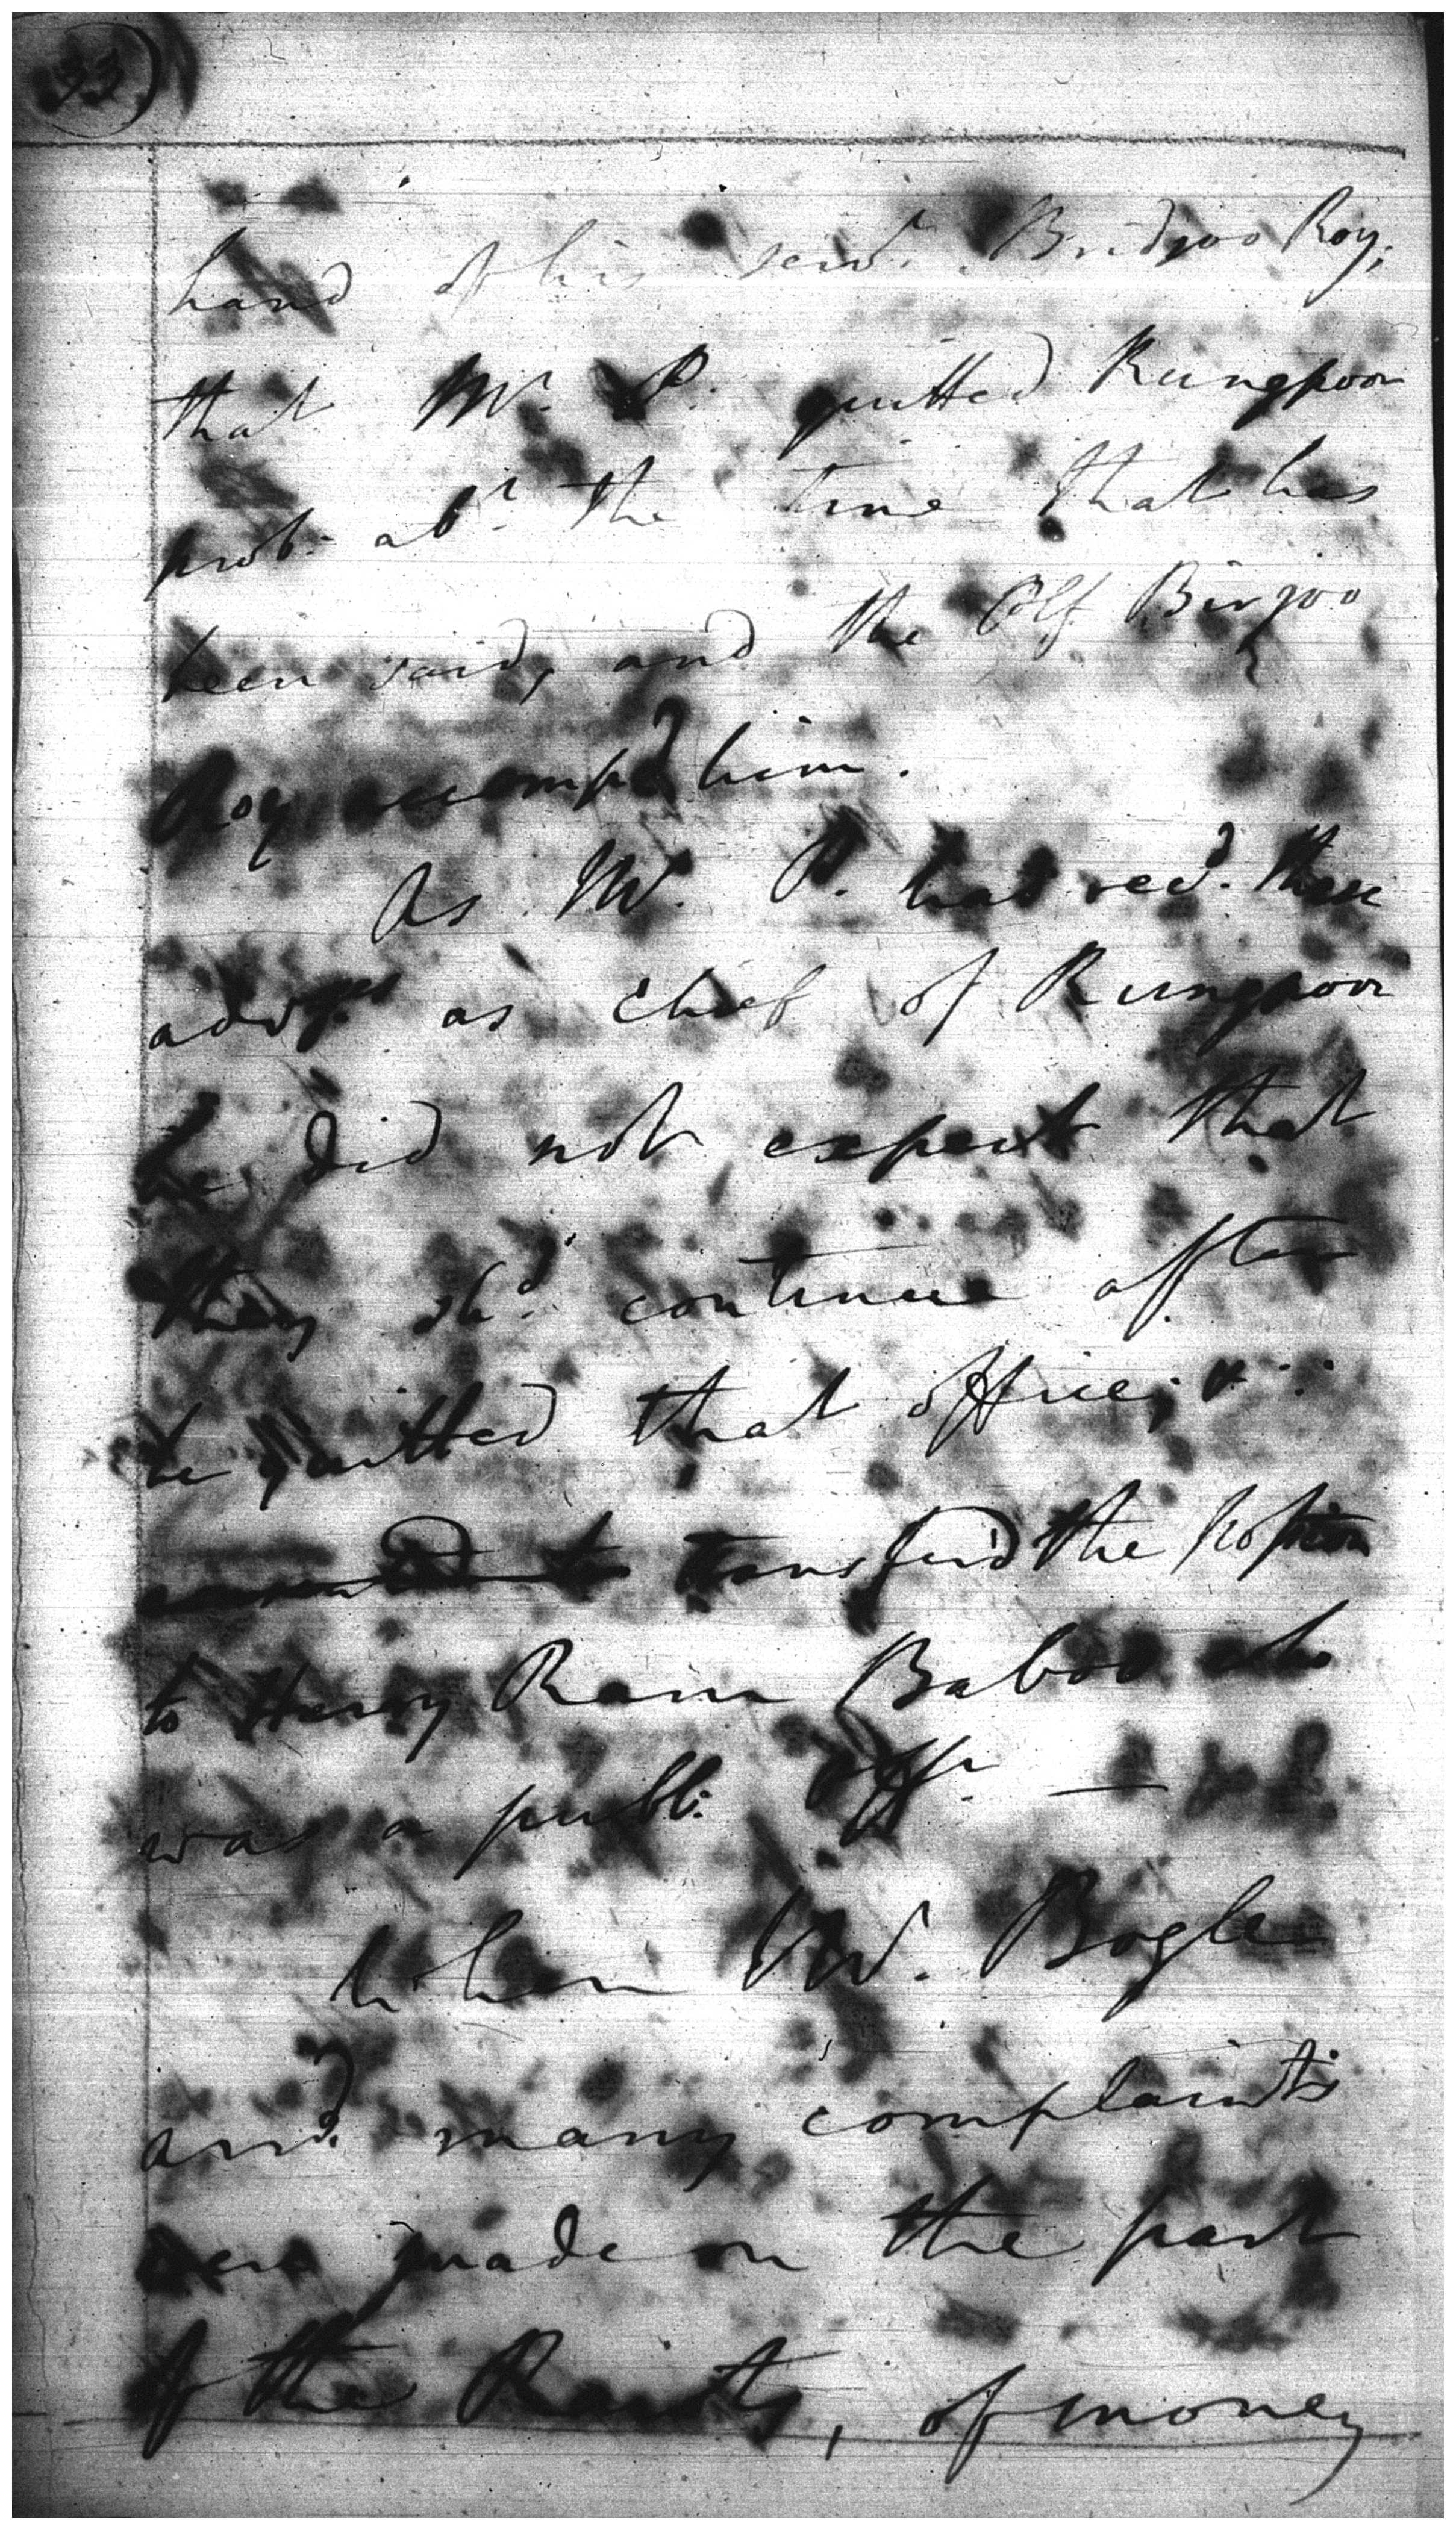 33
hand of his serv.t Bridjoo Roy;
that Mr. P. quitted Rungpoor
prob. ab.t the time that has
been said, and the Plf Birjoo
Roy accomp.d him.
As Mr. P. had rec.d these
adv.ges as chief of Rungpoor
he did not expect that
they sh.d continue after
he quitted that office; &
to transferd the
to Herry Ram Baboo who
was a publ. Offr. —
When Mr. Bogle
arr.d many complaints
were made on the part
of the Raiots, of money